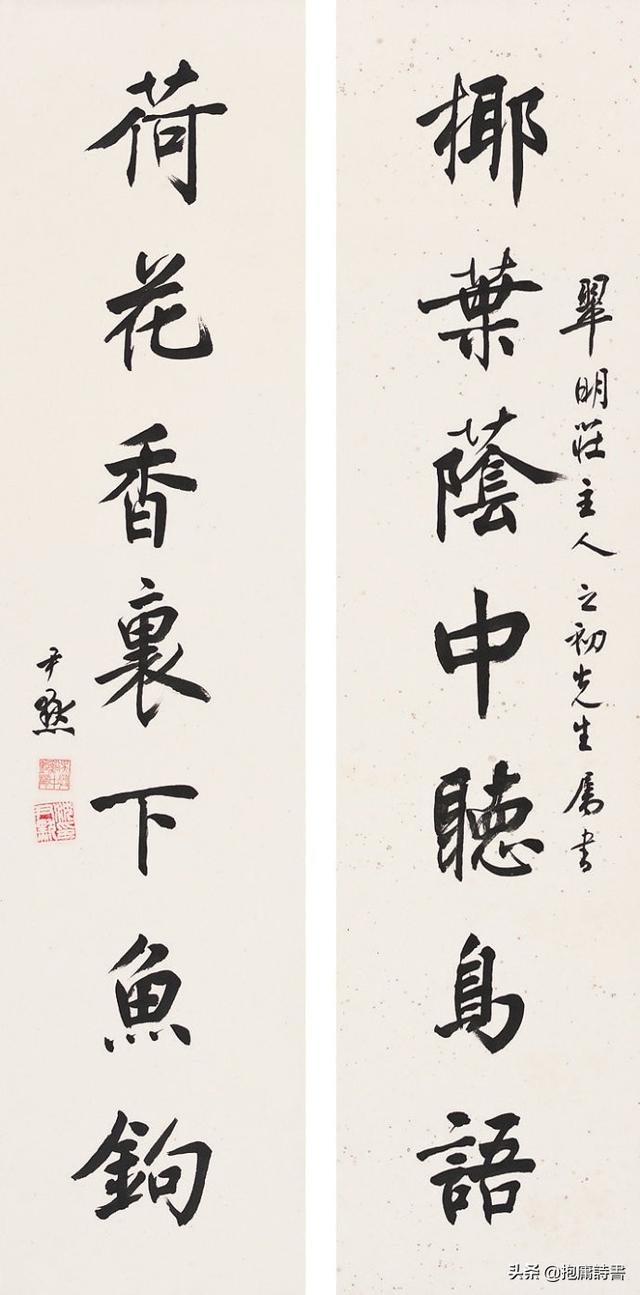 椰葉蔭中聽鳥語
翠明莊主人之初先生屬書
荷花香裏下魚鉤
尹默
头条 @抱庸詩書